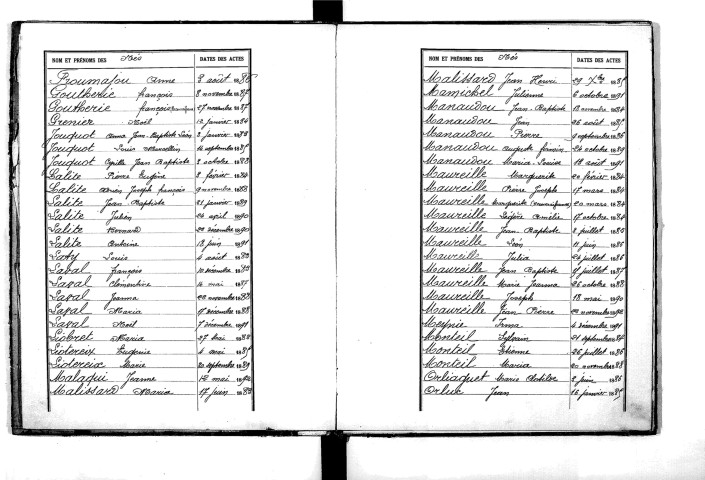 NOM ET PRÉNOMS DES Nés DATES DES ACTES
Roumajou Anne 3 août 1886
Goutherie françois 8 novembre 1887
Goutherie 27 novembre 1887
Grenier Noël 12 janvier 1884
Jouquot Jean-Baptiste Léon 2 janvier 1883
Jouquot Louis Marcellin 14 septembre 1885
Jouquot Cyrille Jean Baptiste 2 octobre 1888
Lalite Pierre Eugène 2 février 1884
Lalite Adrien Joseph françois 9 novembre 1888
Lalite Jean Baptiste 21 janvier 1889
Lalite Julien 24 avril 1890
Lalite Bernard décembre 1890
Lalite Antoine 18 juin 1891
Laty Louis 4 août 1883
Laval françois 10 novembre 1885
Laval Clémentine 14 mai 1887
Laval Jeanne 20 novembre 1888
Laval Maria 17 décembre 1888
Laval Noël 7 décembre 1891
Liobret Maria 27 mai 1888
Liotereix Eugénie 4 mai 1885
Liotereix Marie 20 septembre 1889
Malaqui Jeanne 12 mai 1892
Malissard Maria 17 juin 1883
NOM ET PRÉNOMS DES Nés DATES DES ACTES
Malissard Jean Henri 29 Xbre 1885
Mamichel Julienne 6 octobre 1891
Manaudou Jean-Baptiste novembre 1884
Manaudou Jean 26 août 1885
Manaudou Pierre 9 septembre 1886
Manaudou Auguste firmin 24 octobre 1889
Manaudou Maria Louise 18 août 1891
Maureille Marguerite 20 février 1884
Maureille Pierre Joseph 17 mars 1884
Maureille Marguerite 20 mars 1884
Maureille Amélie 17 octobre 1884
Maureille Jean Baptiste 2 juillet 1885
Maureille Léon 11 juin 1886
Maureille Julia 24 juillet 1886
Maureille Jean Baptiste 17 juillet 1887
Maureille Marie Jeanne 26 octobre 1888
Maureille Joseph 18 mai 1890
Maureille Jean Pierre novembre 1892
Meynie Irma 4 décembre 1891
Monteil Sylvain 21 septembre 1884
Monteil Etienne 26 juillet 1886
Monteil Maria 20 novembre 1888
Orliaquet Marie Clotilde 2 juin 1886
Orluk Jean 16 janvier 1885